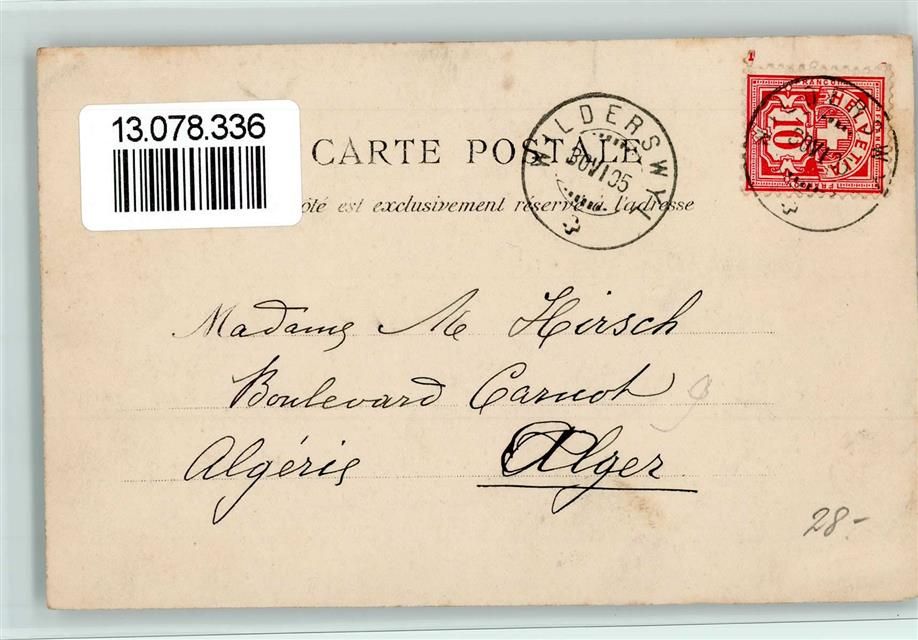 13.078.336
CARTE POSTALE
ôté est exclusivement réservé à l'adresse
WILDERSWYL
30 VI 05
FRANCO
HELVETIA
10
Madame M Hirsch
Boulevard Carnot
Algérie Alger
28.-